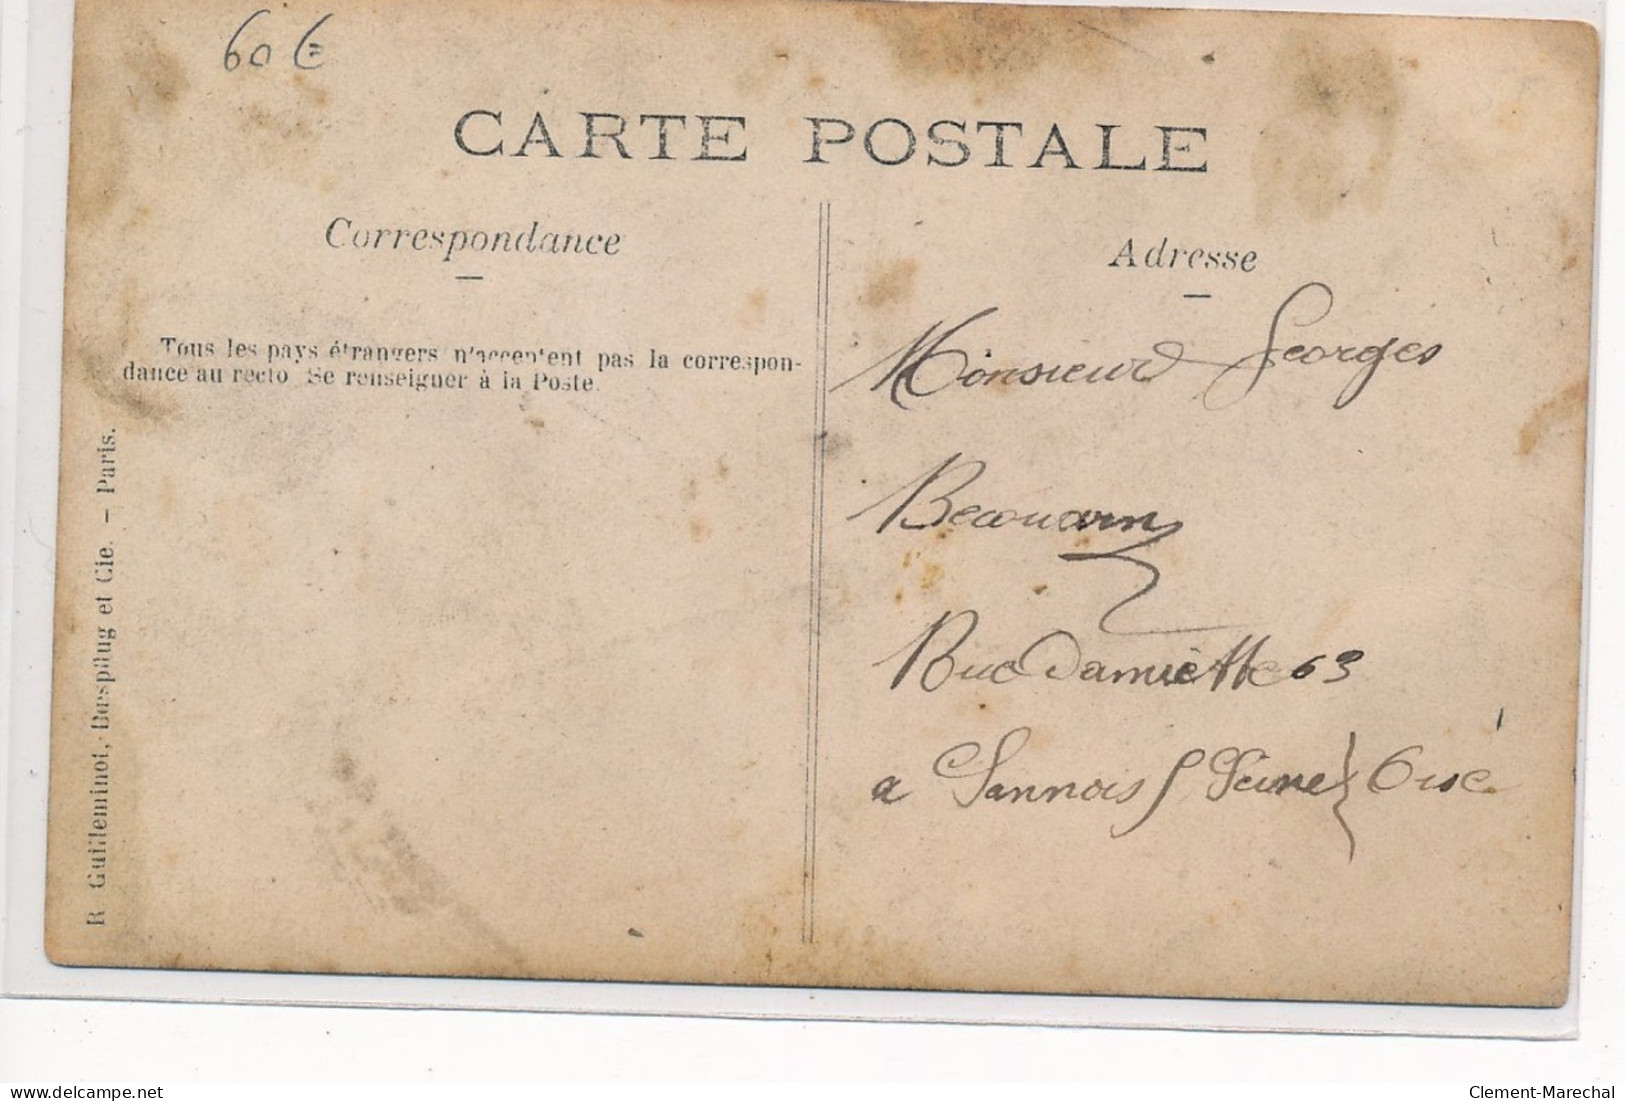 60 €
CARTE POSTALE
Correspondance
Tous les pays étrangers n'acceptent pas la correspon-
dance au recto. Se renseigner à la Poste.
R. Guilleminot, Bœspflug et Cie. — Paris.
Adresse
Monsieur Georges
Rue Damiette 63
a Sannois S Seine } Oise
delcampe.net
Clement-Marechal